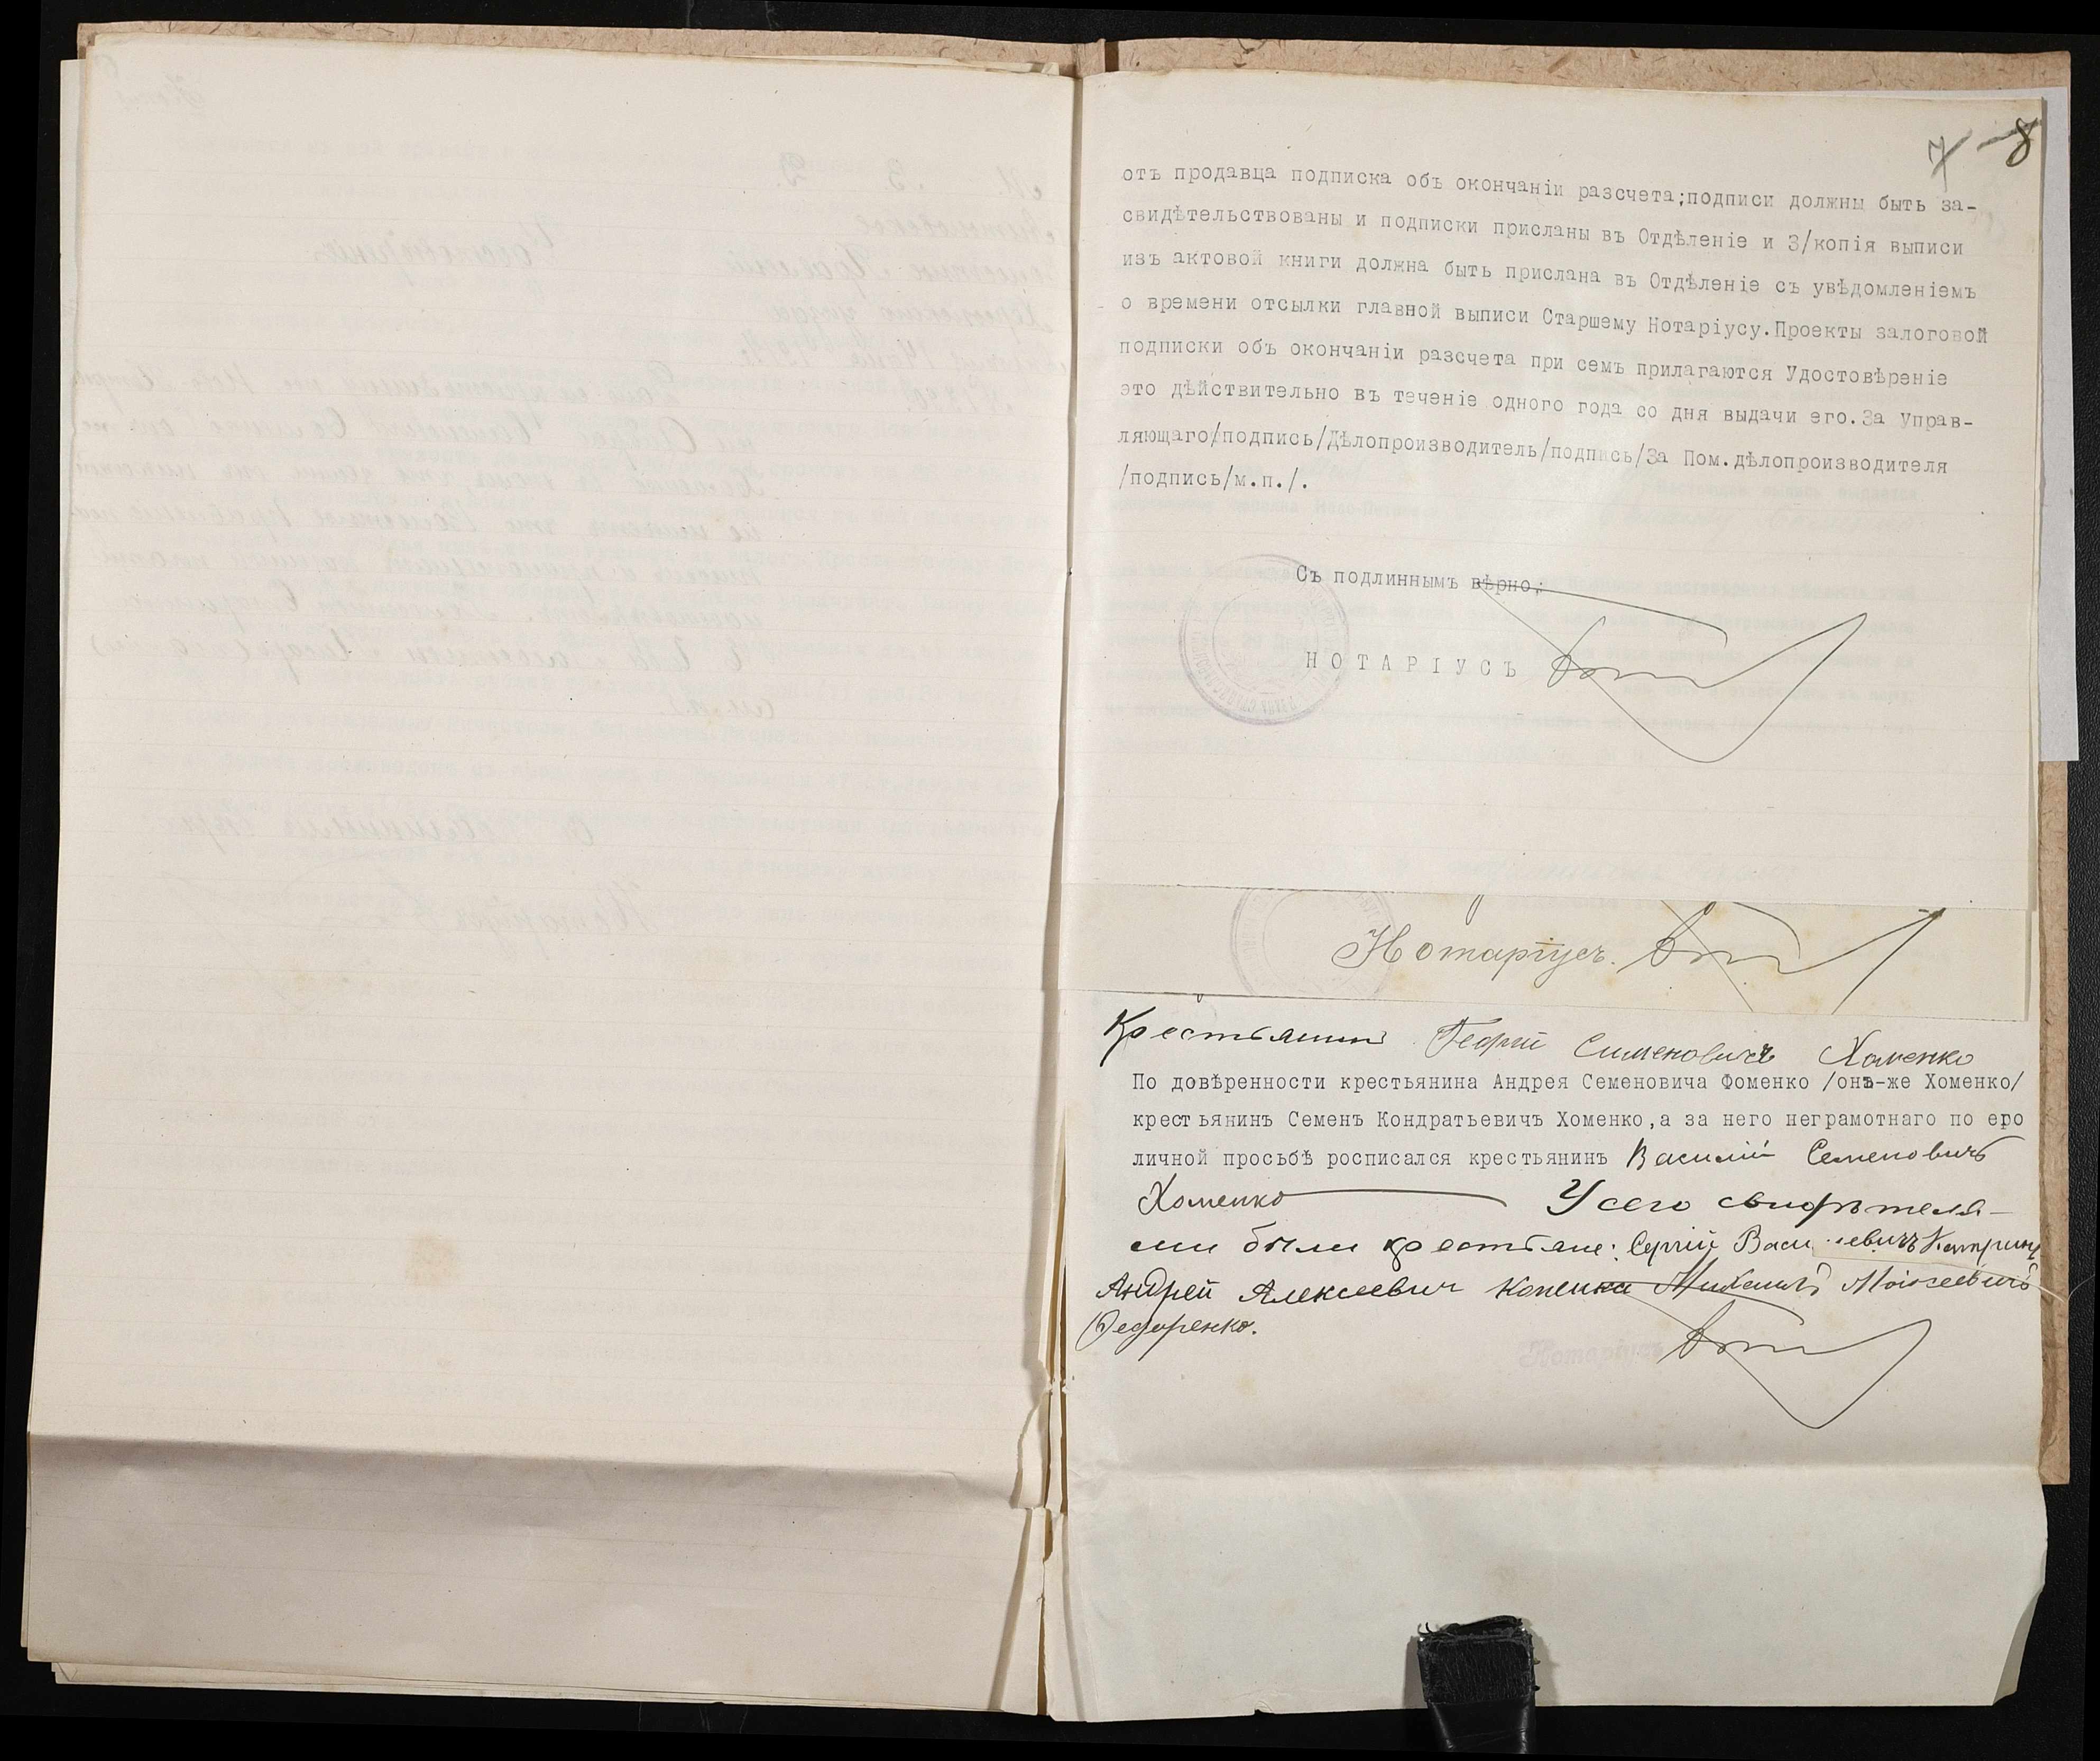 7 8
отъ продавца подписка объ окончаніи разсчета;подписи должны быть за-
свидѣтельствованы и подписки присланы въ Отдѣленіе и 3/копія выписи
изъ актовой книги должна быть прислана въ Отдѣленіе съ увѣдомленіемъ
о времени отсылки главной выписи Старшему Нотаріусу.Проекты залоговой
подписки объ окончаніи разсчета при семъ прилагаются Удостовѣреніе
это дѣйствительно въ теченіе одного года со дня выдачи его.За Управ-
ляющаго/подпись/Дѣлопроизводитель/подпись/За Пом.дѣлопроизводителя
/подпись/м.п./.
Съ подлиннымъ вѣрно:
НОТАРІУСЪ
Нотаріусъ.
Крестьянинъ Георгій Сименовичъ Хоменко
По довѣренности крестьянина Андрея Семеновича Фоменко /онъ-же Хоменко/
крестьянинъ Семенъ Кондратьевичъ Хоменко,а за него неграмотнаго по его
личной просьбѣ росписался крестьянинъ Василій Семеновичъ
Хоменко У сего свидѣтеля-
ми были крестьяне: Сергій
Андрей Алексеевич Михаилъ Моисеевичъ
Федоренко.
Нотаріусъ